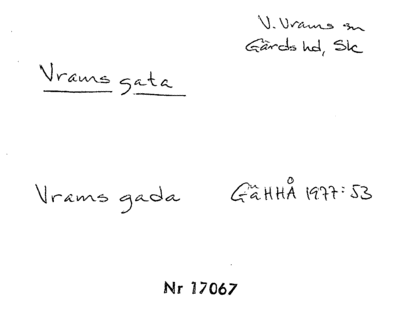 V. Vrams sn
Gärds hd, Sk
Vrams gata
Vrams gada GäHHÅ 1977:53
Nr 17067